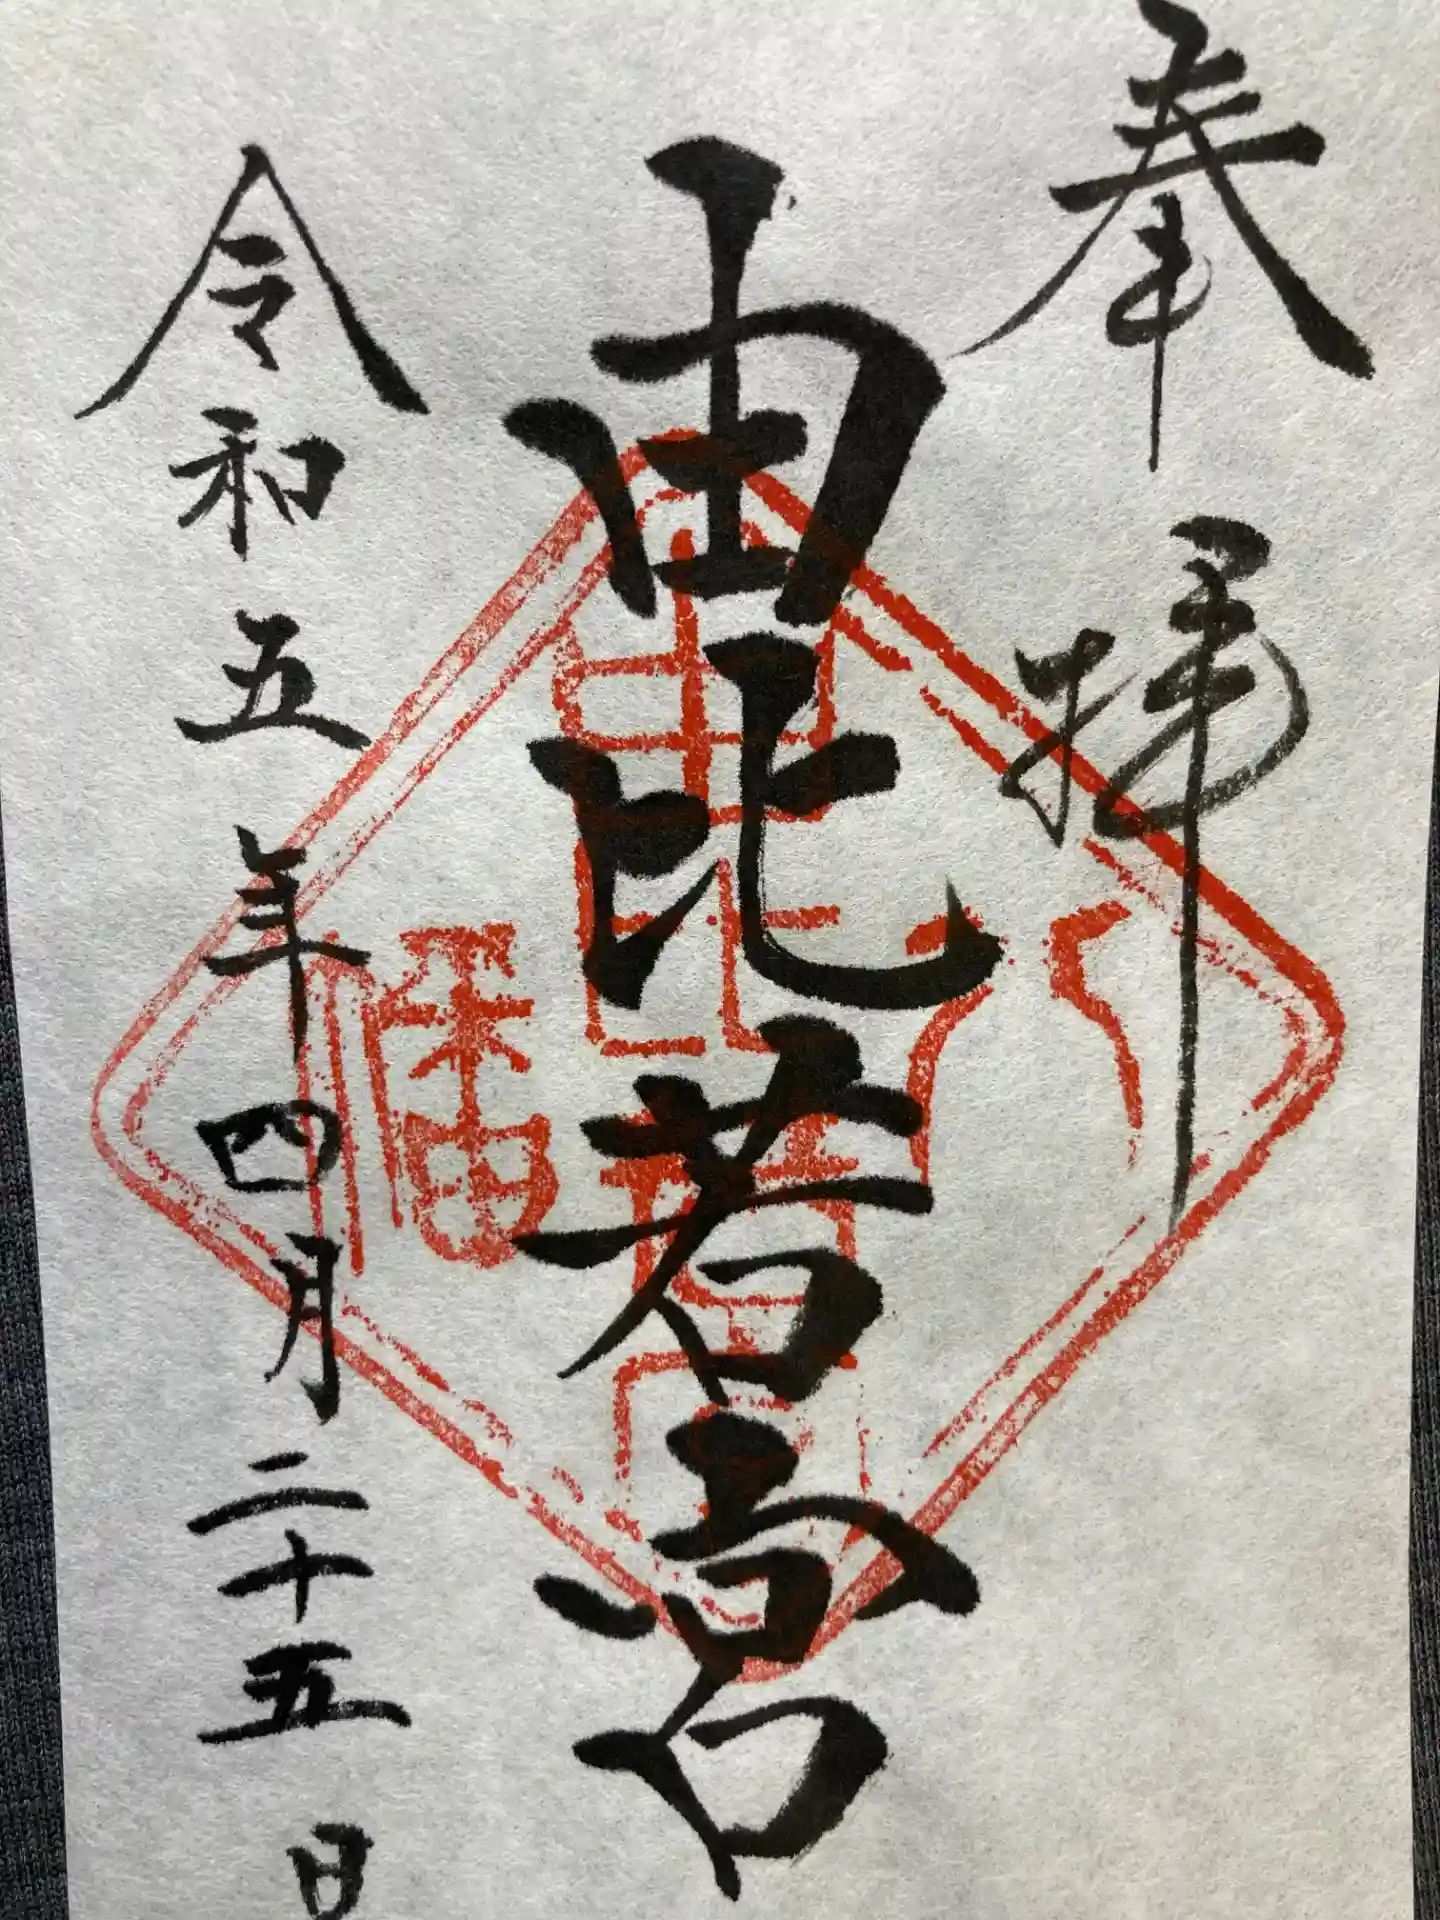 奉拝
由比若宮
令和五年四月二十五日